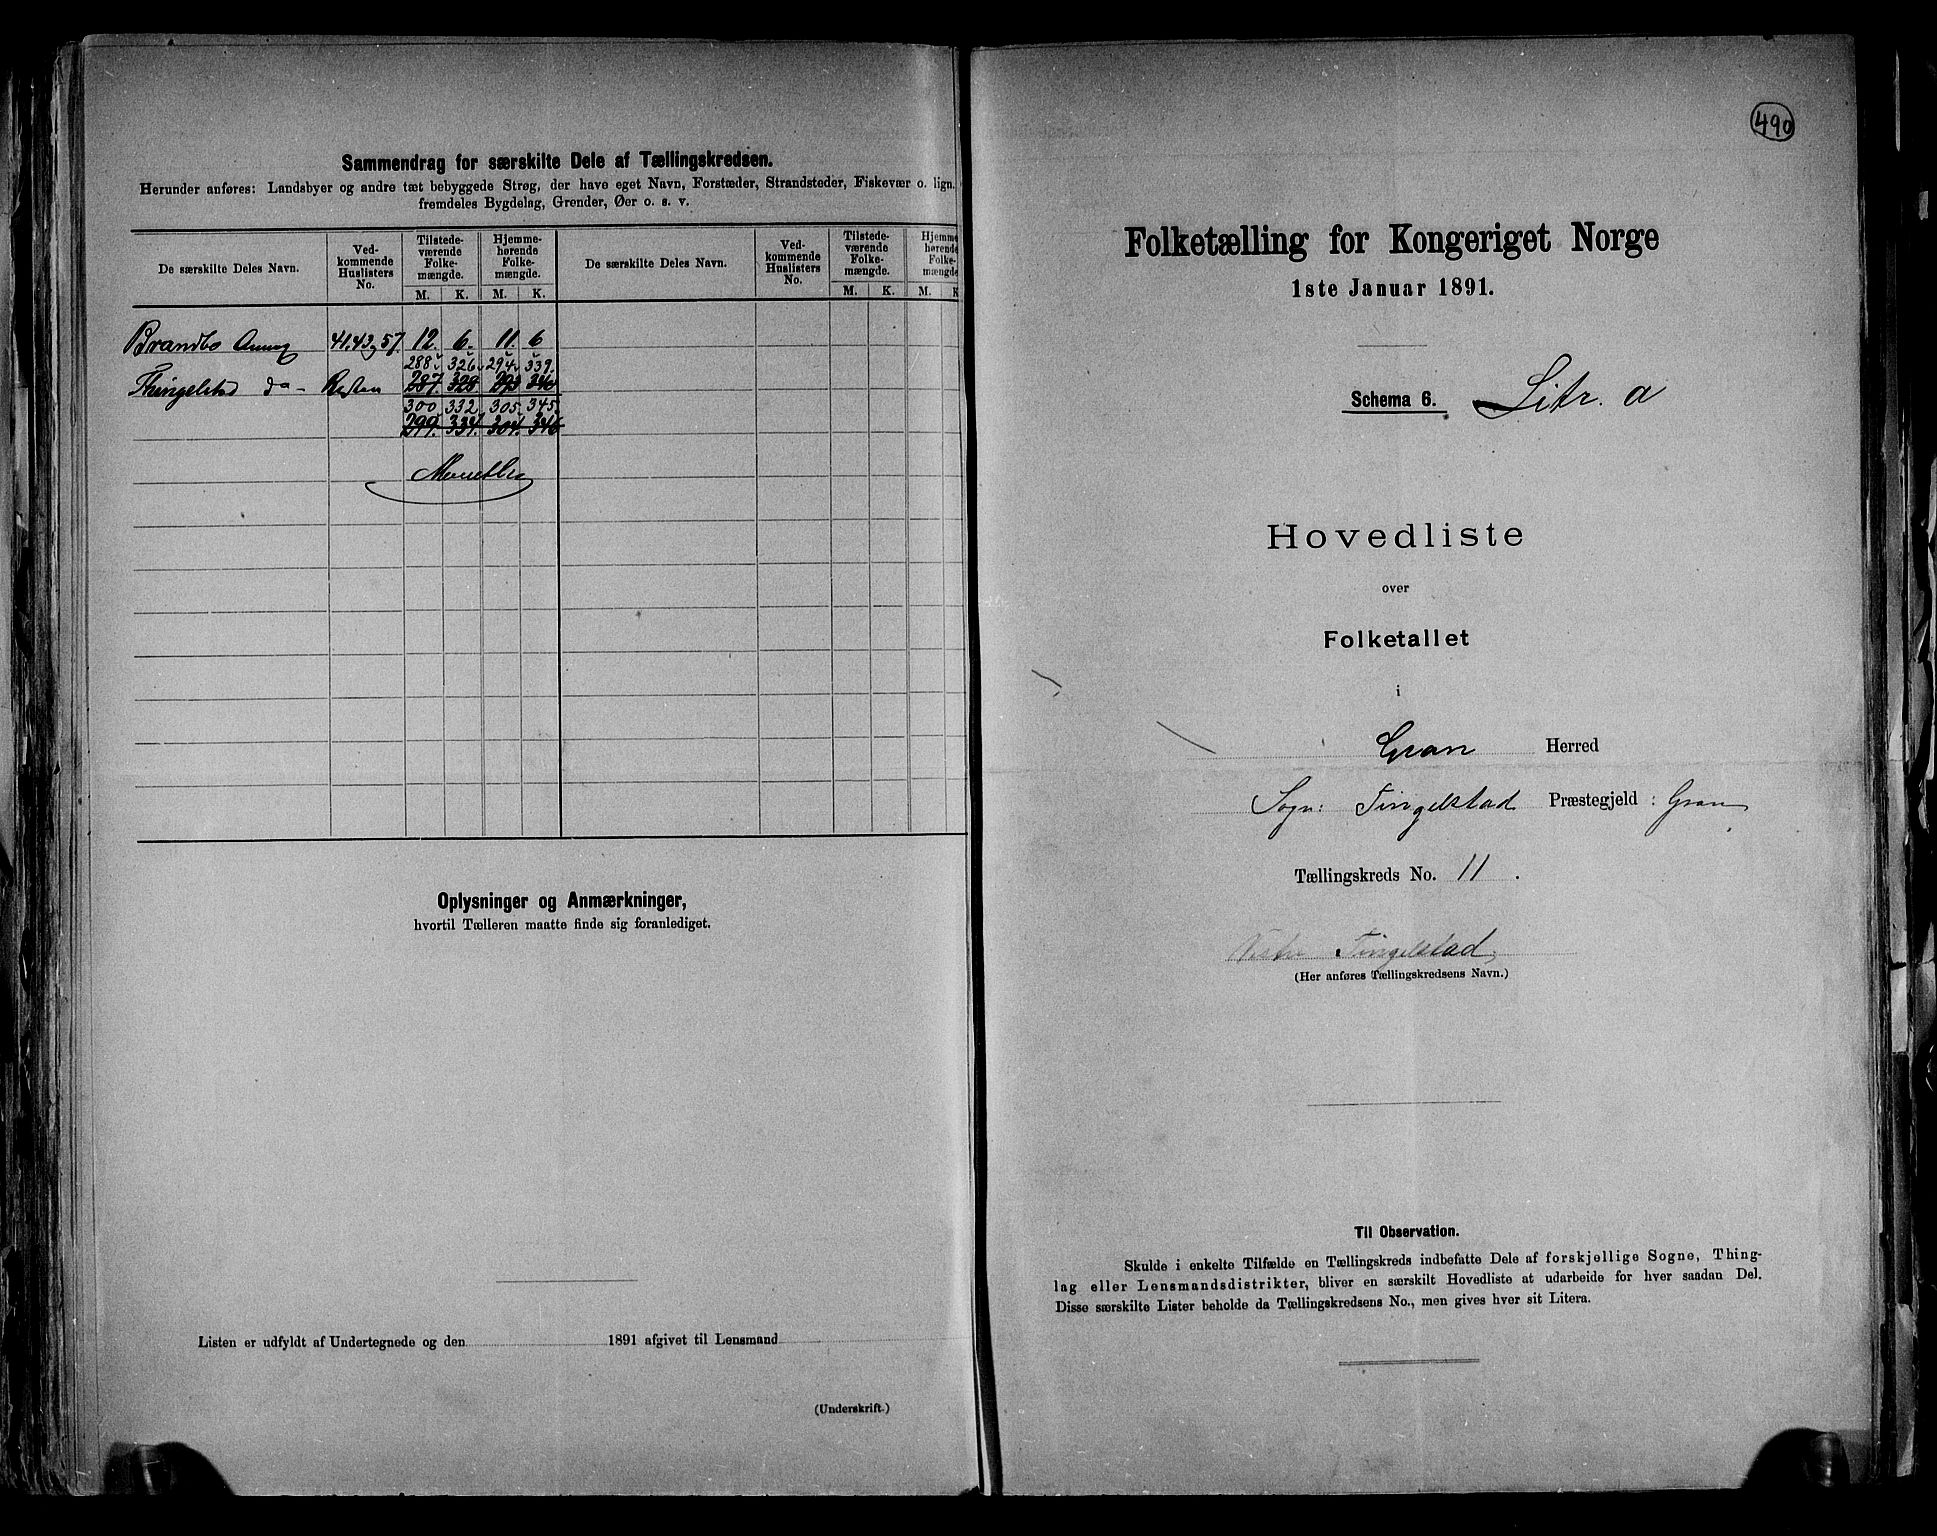 Sammendrag for særskilte Dele af Tællingskredsen.
Herunder anføres: Landsbyer og andre tæt bebyggede Strøg, der have eget Navn, Forstæder, Strandsteder, Fiskevær o. lign.
fremdeles Bygdelag, Grender, Øer o. s. v.
De særskilte Deles Navn. Ved-kommende Huslisters No. Tilstede-værende Folke-mængde. M. K. Hjemme-hørende Folke-mængde. M. K. De særskilte Deles Navn. Ved-kommende Huslisters No. Tilstede-værende Folke-mængde. M. K. Hjemme-hørende Folke-mængde. M. K.
Brandbo 41.43 57. 12. 6. 11. 6
288 326 294 339.
Thingelstad do Resten 287. 328 293 340
300 332 305. 345.
299. 334. 304. 346
Oplysninger og Anmærkninger,
hvortil Tælleren maatte finde sig foranlediget.
Listen er udfyldt af Undertegnede og den 1891 afgivet til Lensmand
(Underskrift.)
490
Folketælling for Kongeriget Norge
1ste Januar 1891.
Schema 6. Litr. a
Hovedliste
over
Folketallet
i
Gran Herred
Sogn: Tingelstad Præstegjeld: Gran
Tællingskreds No. 11.
Vestre Tingelstad
(Her anføres Tællingskredsens Navn.)
Til Observation.
Skulde i enkelte Tilfælde en Tællingskreds indbefatte Dele af forskjellige Sogne, Thing-
lag eller Lensmandsdistrikter, bliver en særskilt Hovedliste at udarbeide for hver saadan Del.
Disse særskilte Lister beholde da Tællingskredsens No., men gives hver sit Litera.